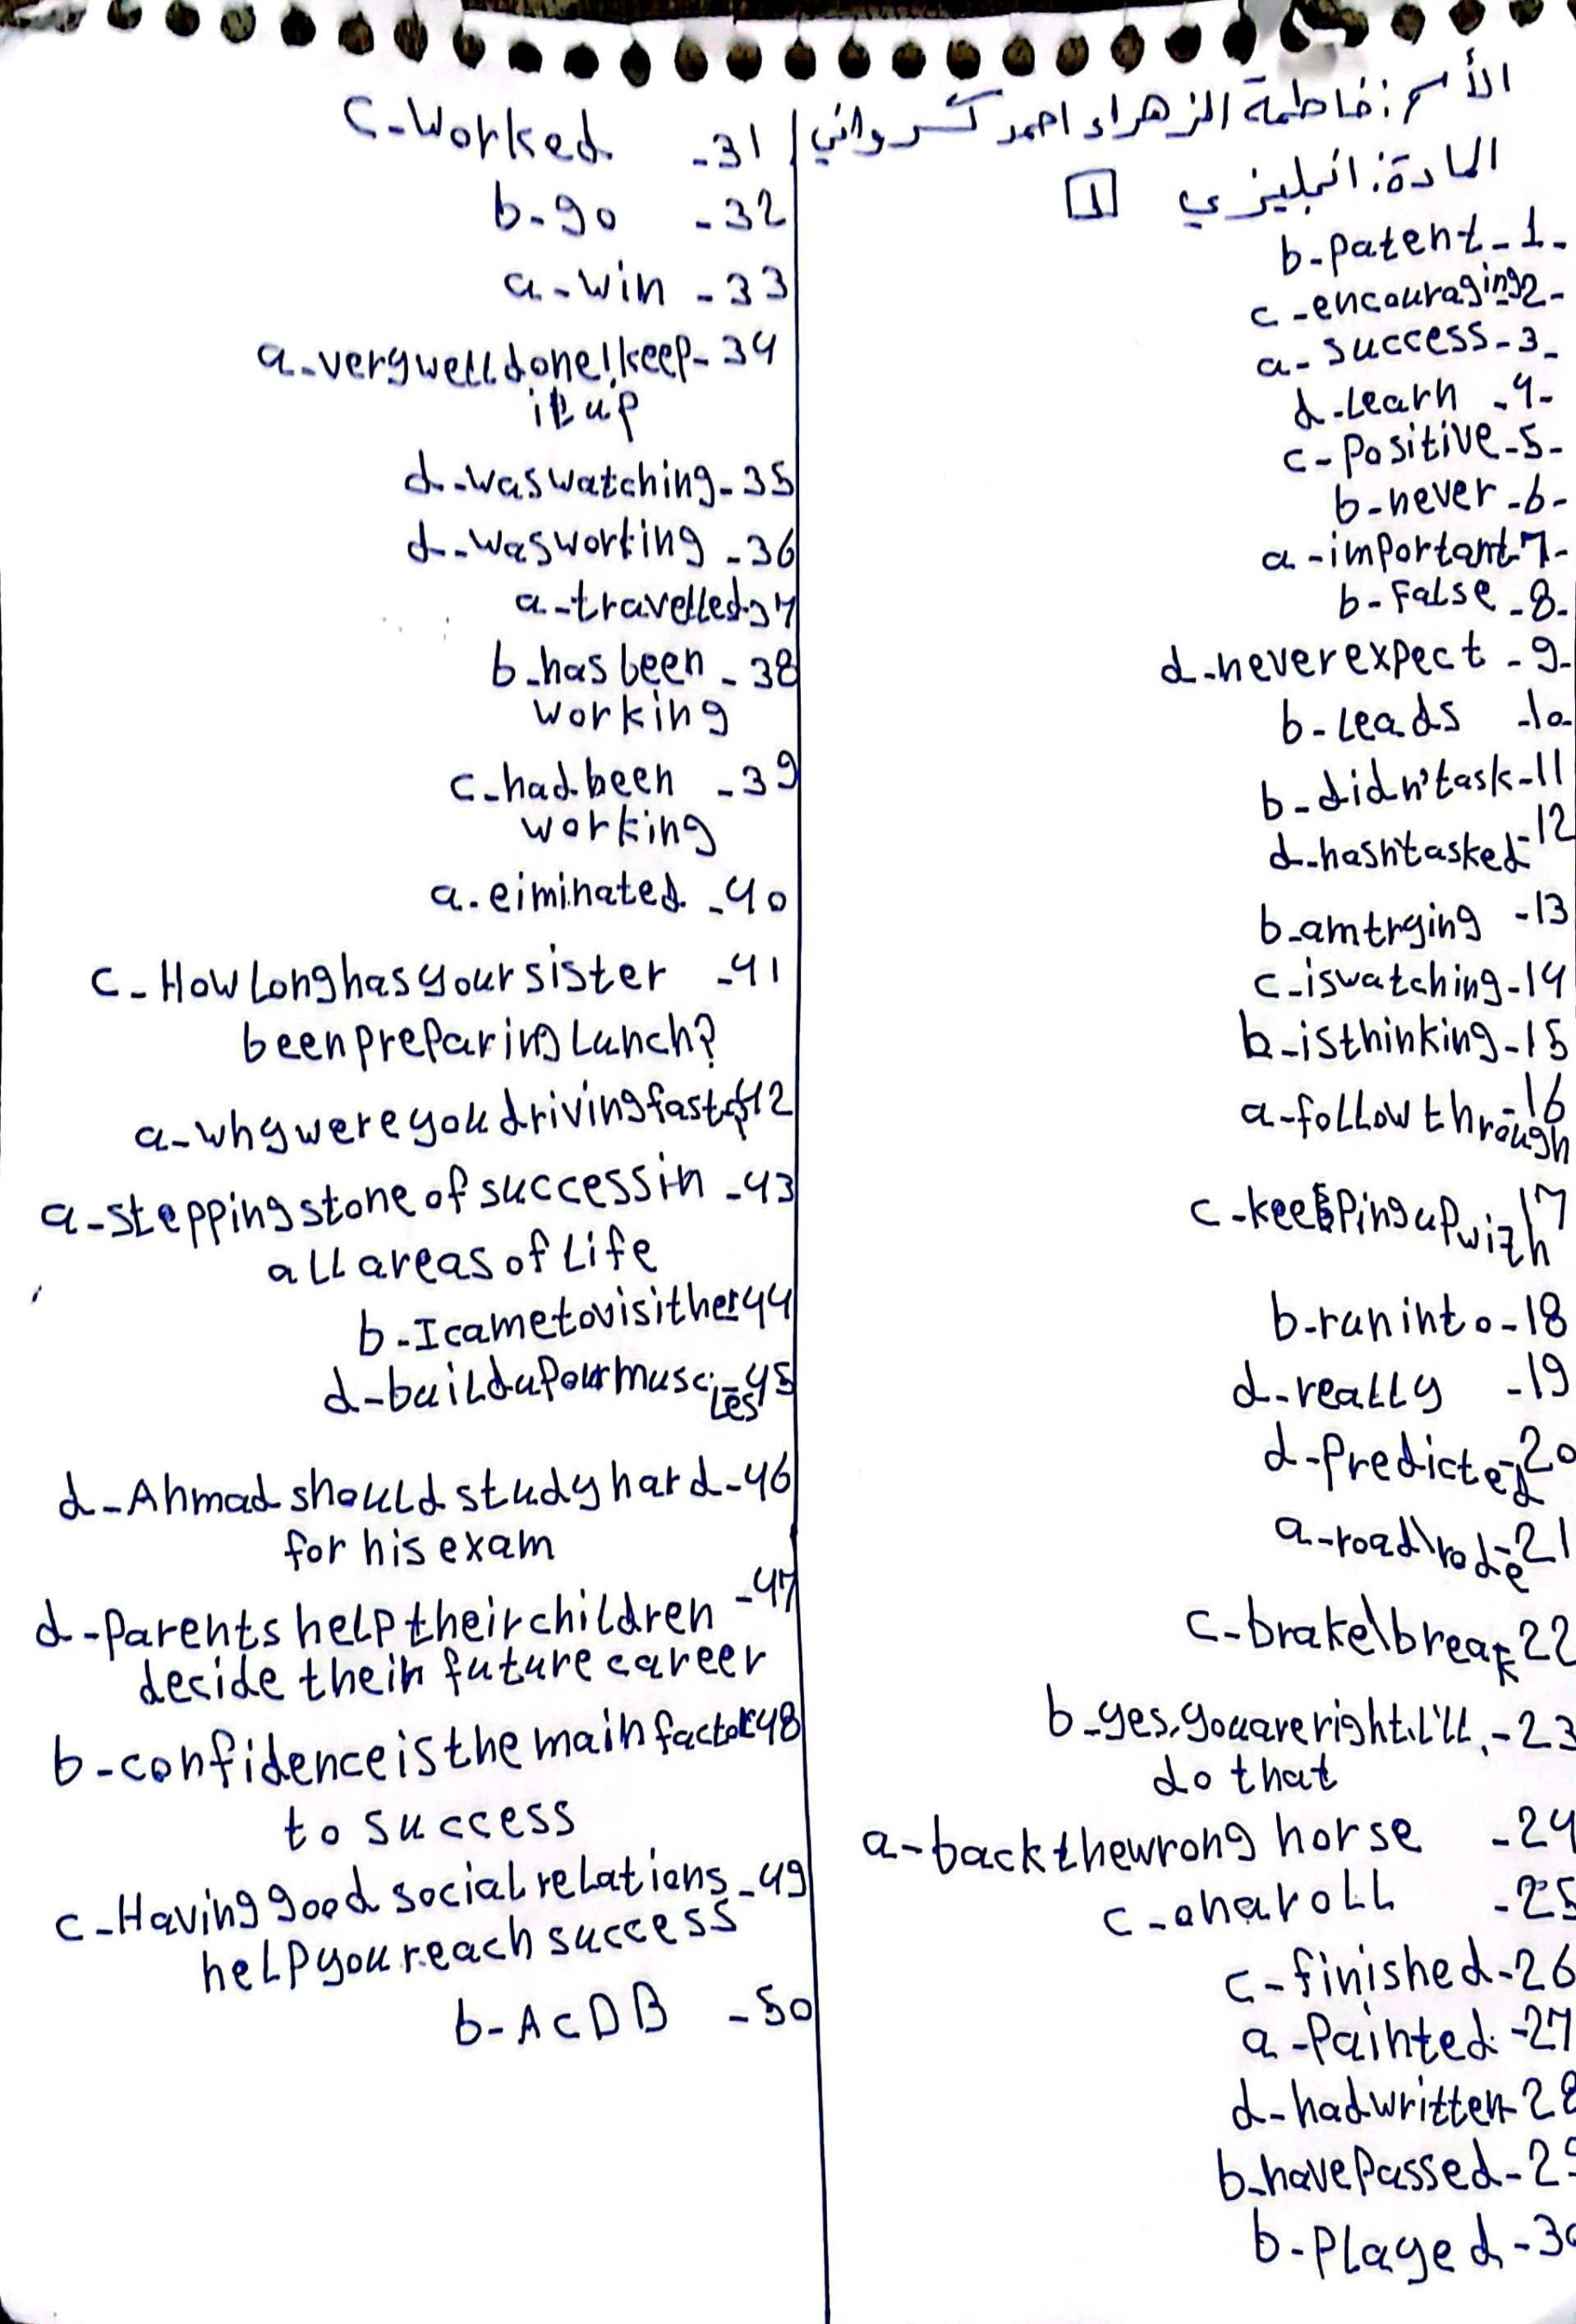 الأسم: فاطمة الزهراء احمد كسرواني
المادة: انجليزي 1
b-patent-1-
c-encouraging2-
a-success-3-
d-learn-4-
c-positive-5-
b-never-6-
a-important-7-
b-false-8-
d-never expect-9-
b-leads-10-
b-didn't ask-11
d-hasn't asked-12
b-am trying-13
c-is watching-14
b-is thinking-15
a-follow through-16
c-keeping up with 17
b-run into-18
d-really-19
d-predicted-20
a-road\rode-21
c-brake\break 22
b-yes, you are right. I'll-23
do that
a-back the wrong horse-24
c-on a roll-25
c-finished-26
a-painted-27
d-had written-28
b-have passed-29
b-played-30
c-worked-31
b-go-32
a-win-33
a-very well done! keep-34
it up
d-was watching-35
d-was working-36
a-travelled-37
b-has been-38
working
c-had been-39
working
a-eiminated-40
c-How long has your sister-41
been preparing lunch?
a-why were you driving fast?42
a-stepping stone of success in-43
all areas of life
b-I came to visit her44
d-build up our muscles-45
d-Ahmad should study hard-46
for his exam
d-parents help their children-47
decide their future career
b-confidence is the main factor48
to success
c-Having good social relations-49
help you reach success
b-ACDB-50